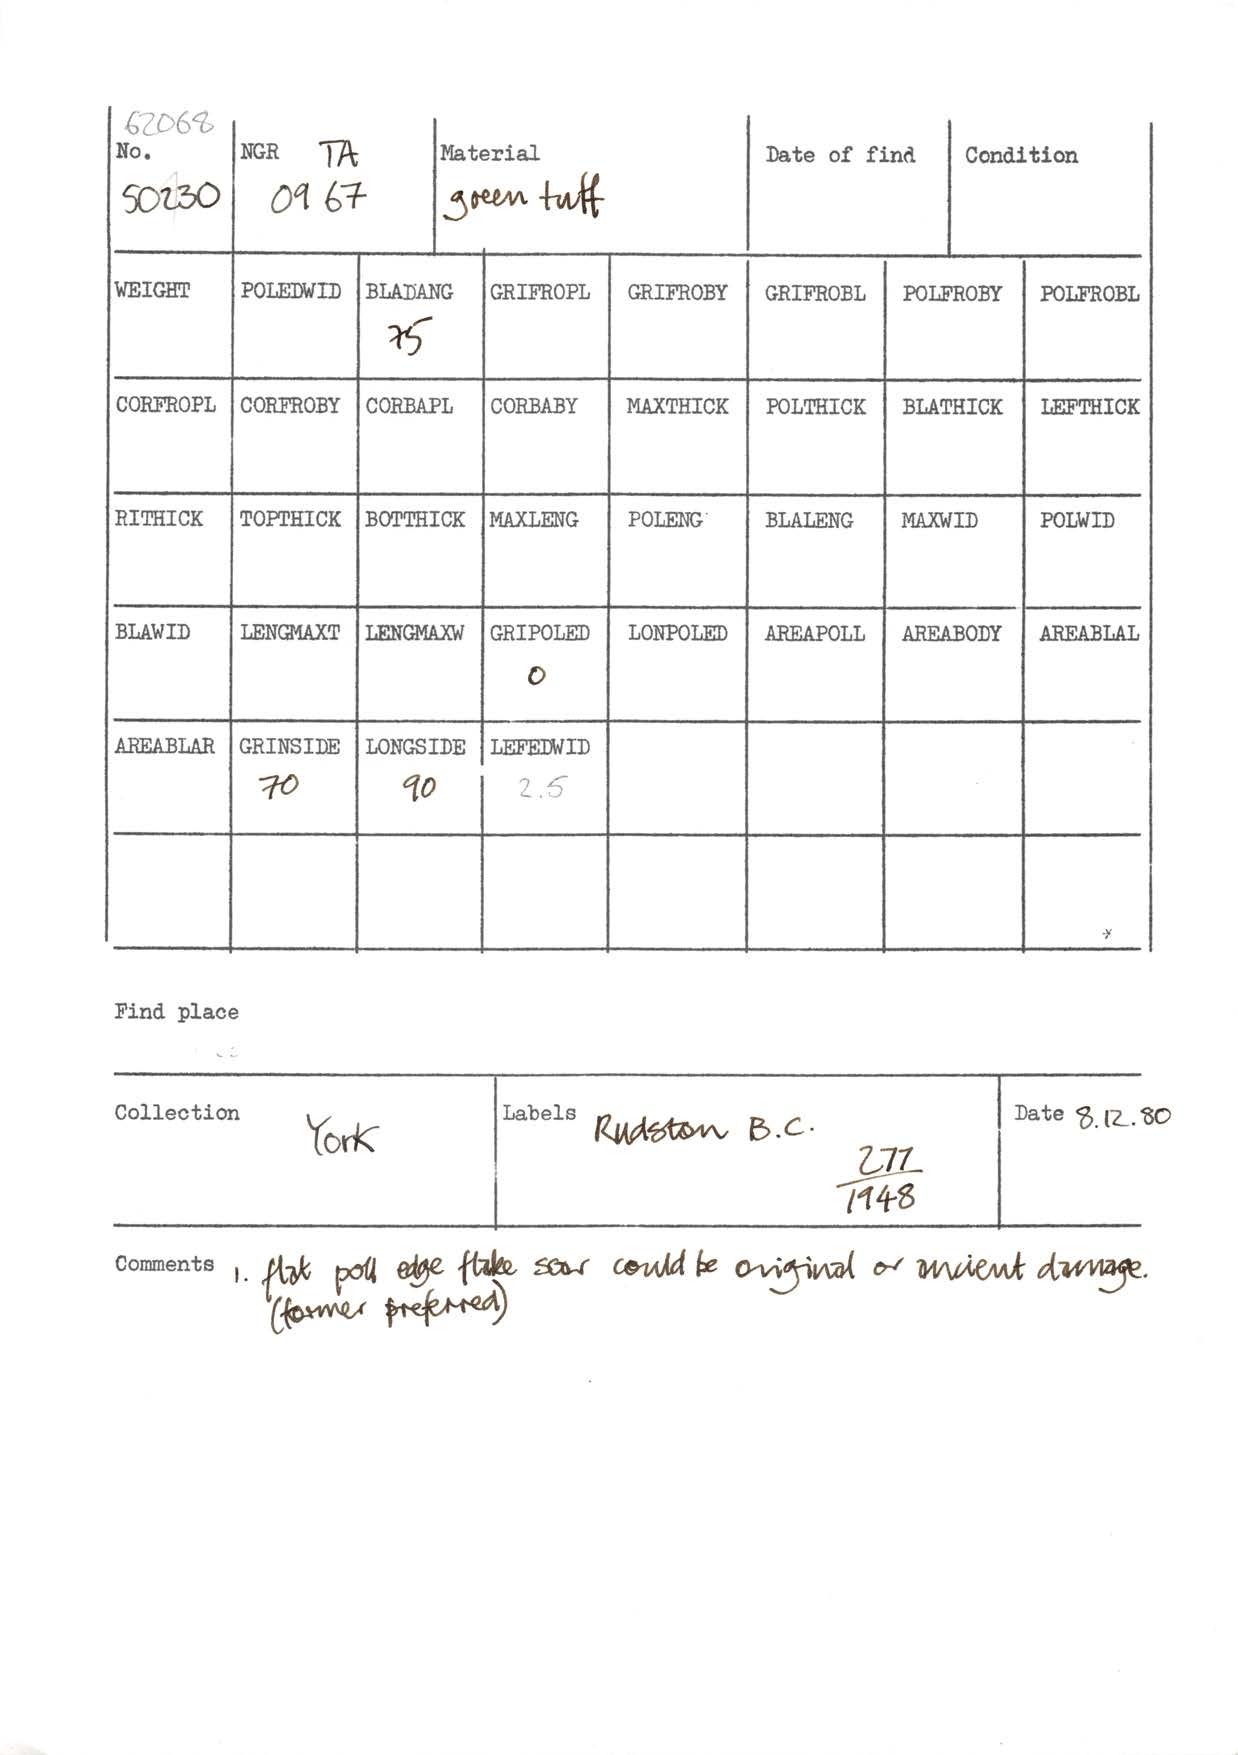 62068
No. NGR TA Material Date of find Condition
09 67 green tuff
WEIGHT POLEDWID BLADANG GRIFROPL GRIFROBY GRIFROBL POLFROBY POLFROBL
75
CORFROPL CORFROBY CORBAPL CORBABY MAXTHICK POLTHICK BLATHICK LEFTHICK
RITHICK TOPTHICK BOTTHICK MAXLENG POLENG BLALENG MAXWID POLWID
BLAWID LENGMAXT LENGMAXW GRIPOLED LONPOLED AREAPOLL AREABODY AREABLAL
0
AREABLAR GRINSIDE LONGSIDE LEFEDWID
70 90 2.5
Find place
Collection York Labels Rudston B.C. Date 8.12.80
277
1948
Comments 1. flat poll edge flake scar could be original or ancient damage.
(former preferred)